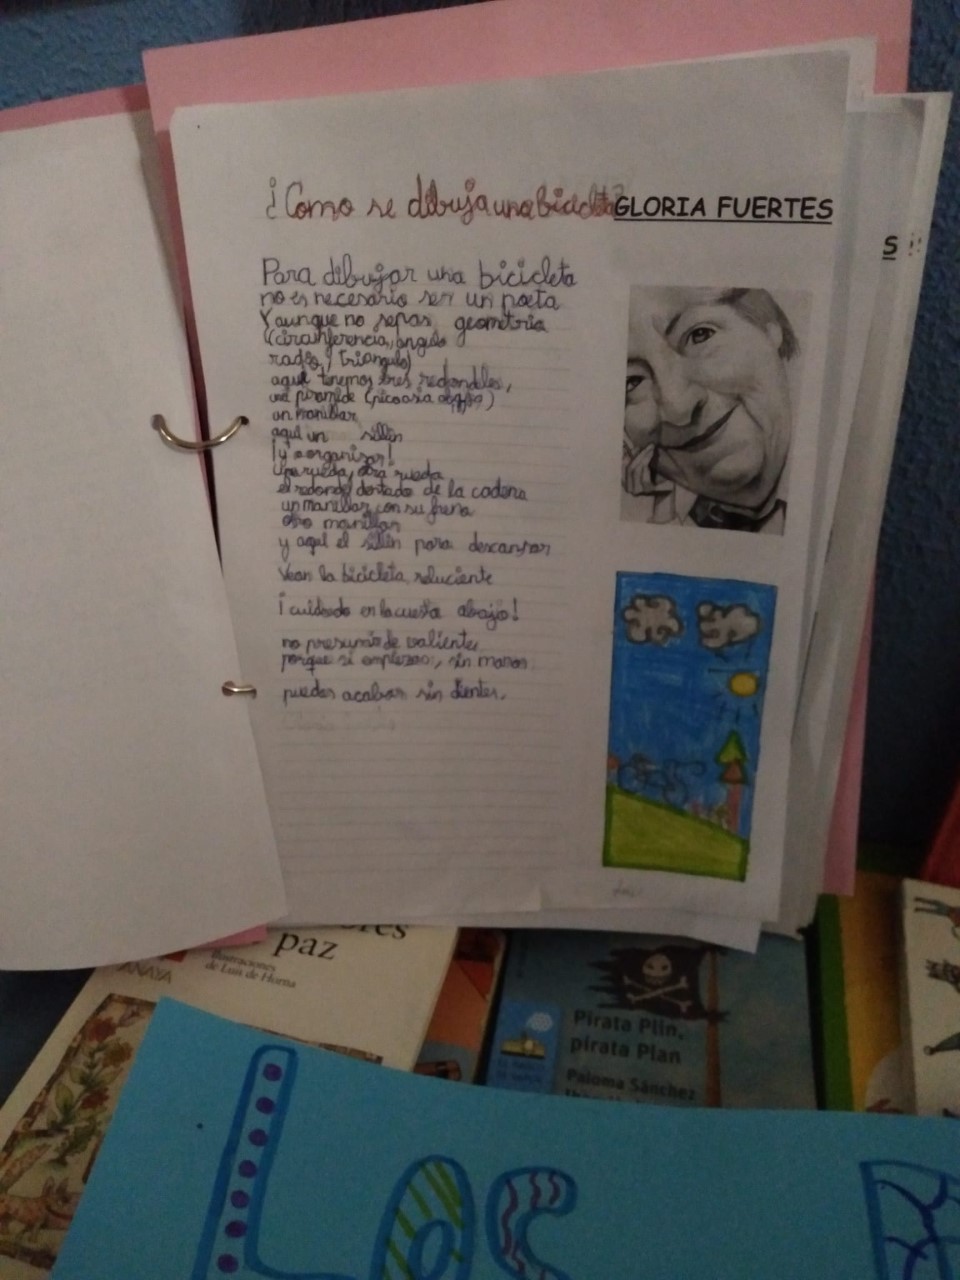 ¿Como se dibuja una bicicleta?
GLORIA FUERTES
S
Para dibujar una bicicleta
no es necesario ser un poeta
Y aunque no sepas geometria
(circunferencia, angulo
radio, triangulo)
aqui tenemos tres redondeles,
una piramide (pico asia abajo)
un manillar
aqui un sillin
¡y a organizar!
una rueda, otra rueda
el redondel dentado de la cadena
un manillar con su freno
otro manillar
y aqui el sillin para descansar
Vean la bicicleta reluciente
¡cuidado en la cuesta abajo!
no presumir de valiente
porque si empiezas, sin manos
puedes acabar sin dientes.
paz
ANAYA
Ilustraciones
de Luis de Horna
Pirata Plin,
pirata Plan
Paloma Sánchez
Las